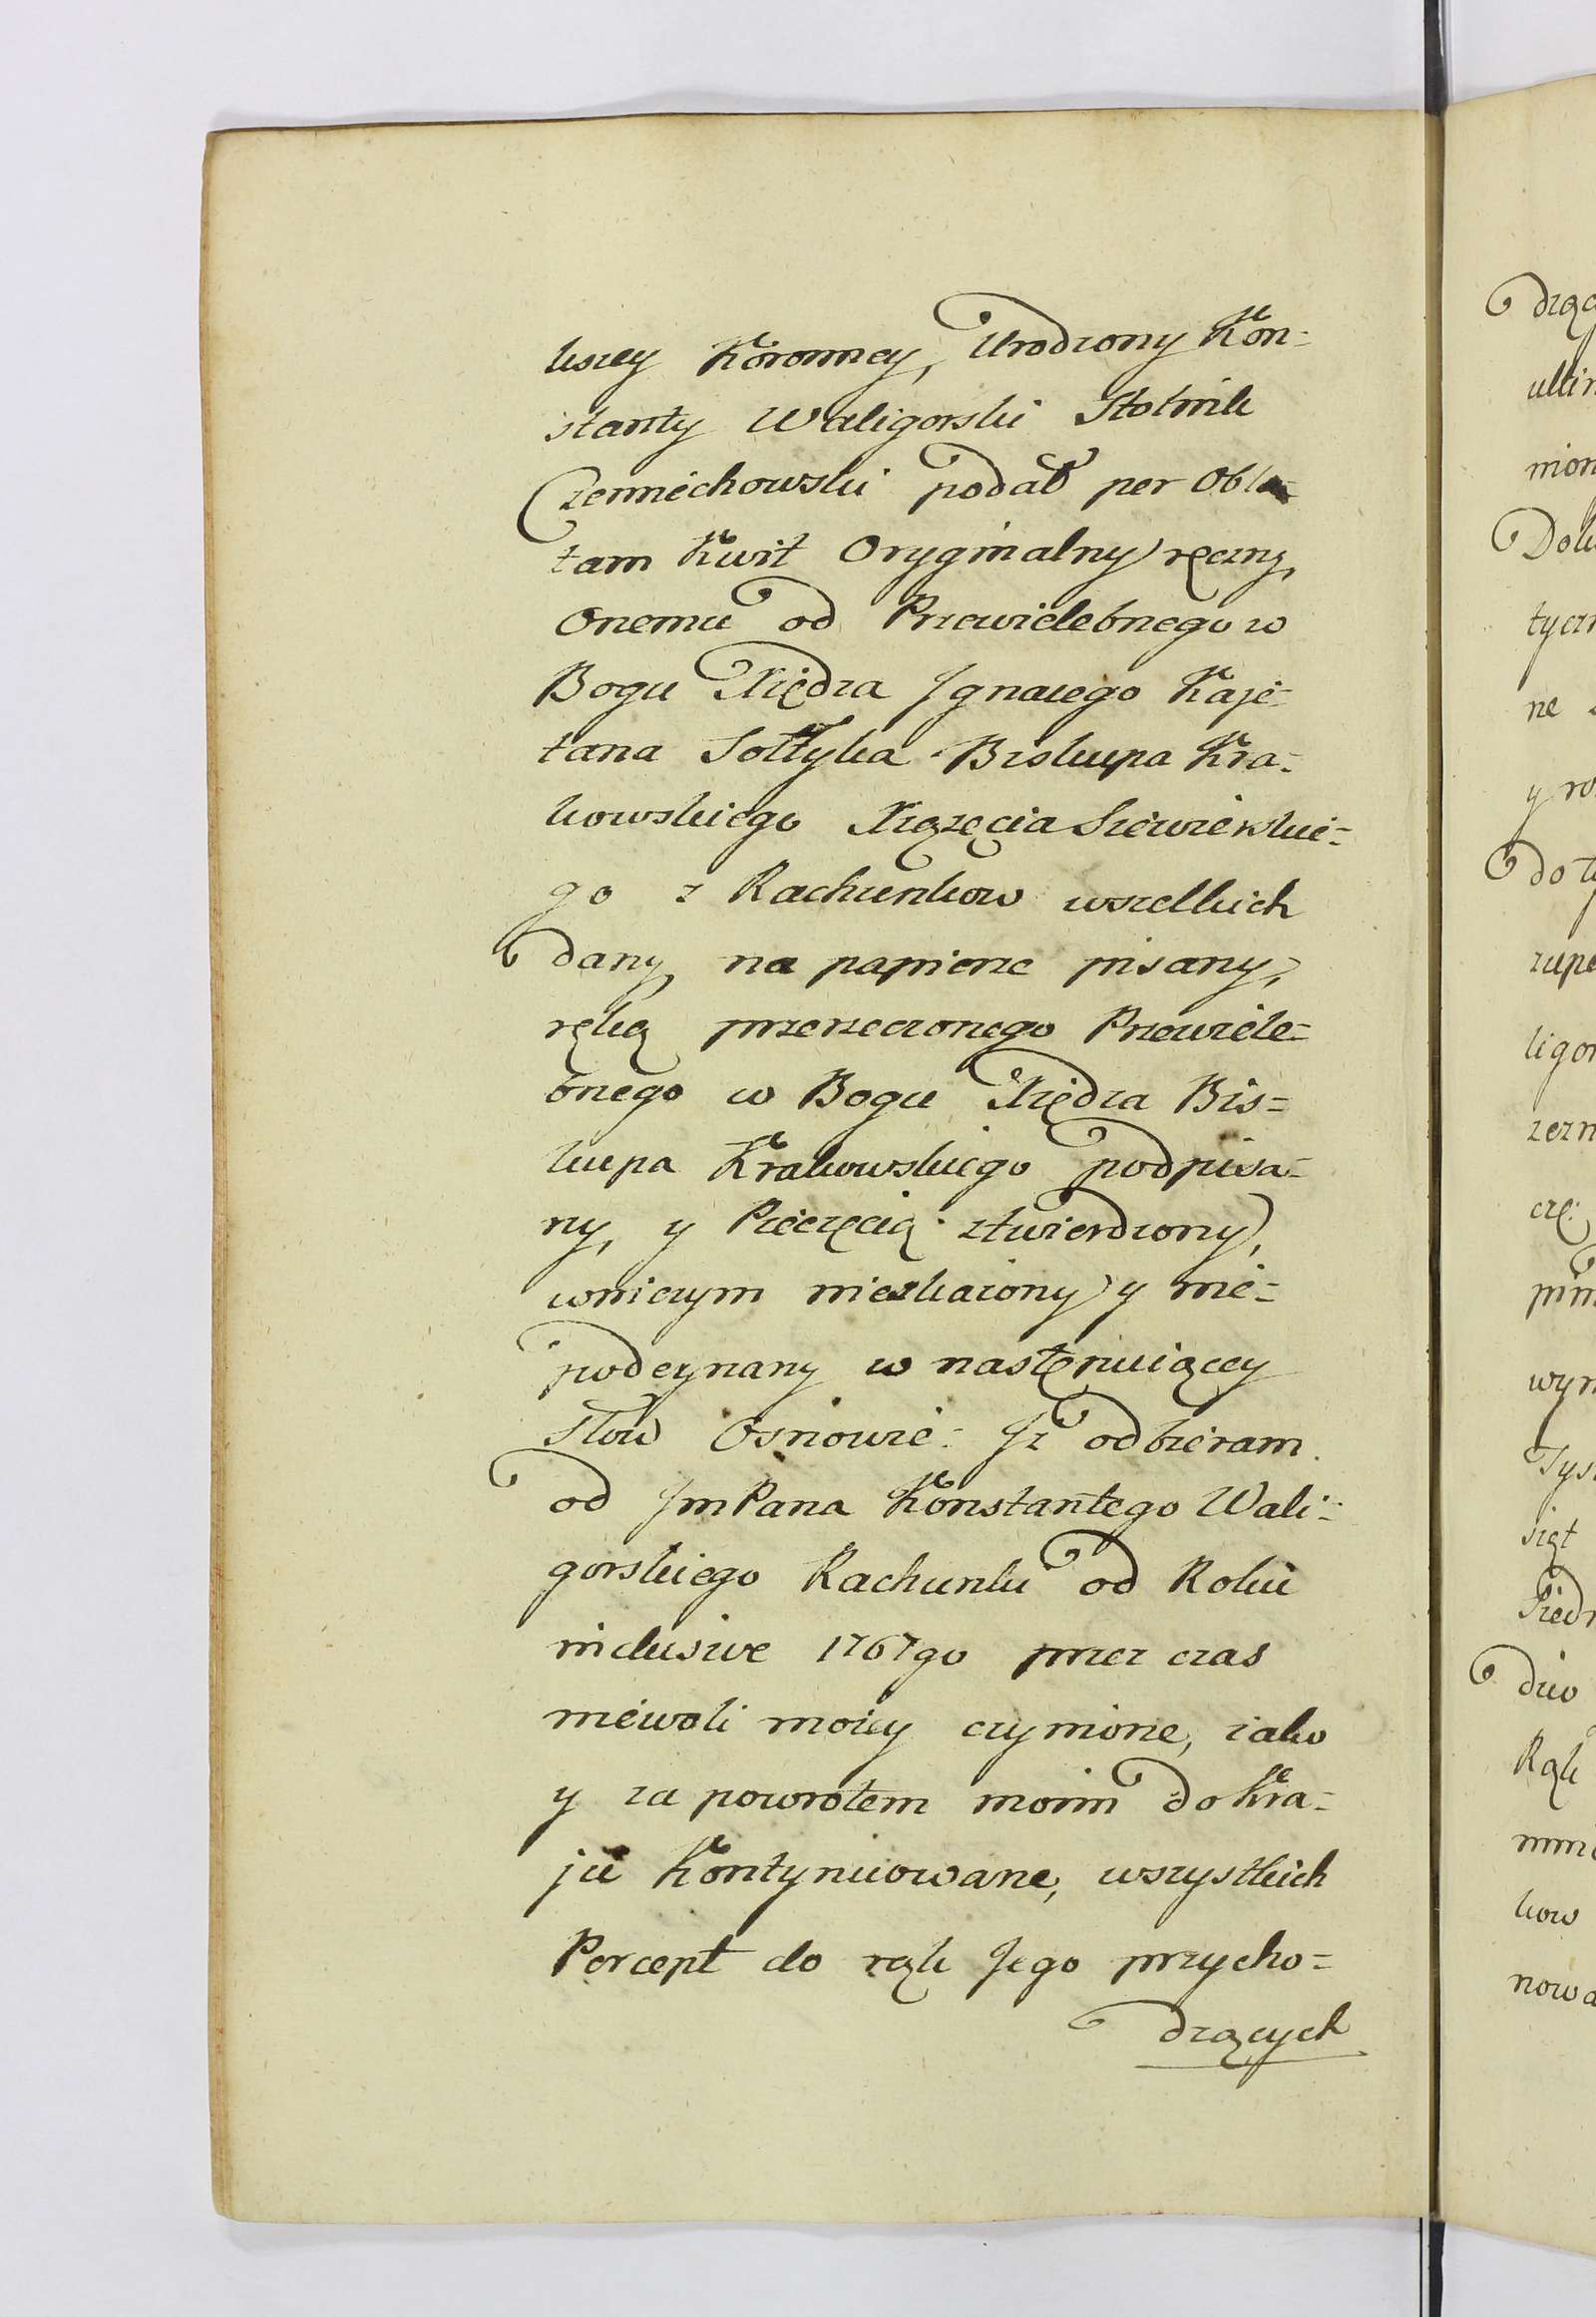 kszey Koronney, Urodzony Kon=
stanty Waligorski Stolnik
Czerniechowski podał per Obla=
tam Kwit Oryginalny ręczny,
Onemu od Przewielebnego w
Bogu Xiędza Ignacego Kaje=
tana Sołtyka Biskupa Kra=
kowskiego Xiążęcia Siewierskie=
go z Rachunkow wszelkich
dany, na papierze pisany,
ręką przerzeczonego Przewiele=
bnego w Bogu Xiędza Bis=
kupa Krakowskiego podpisa=
ny, y Pieczęcią ztwierdzony,
wniczym nieskażony y nie=
podeyrzany w następuiącey
Słow Osnowie: Iż odbieram
od ImPana Konstantego Wali=
gorskiego Rachunki od Roku
inclusive 1767go przez czas
niewoli moiey czynione, iako
y za powrotem moim do Kra=
ju Kontynuowane, wszystkich
Percept do rąk Jego przycho=
dzących
drzą
ultim
nion
Dok
tycz
ne
y ro
do t
zupe
ligor
zezn
czę:
pim
wyn
Tys
siąt
Siedm
dzie
Rąk
mnie
kow
nowa